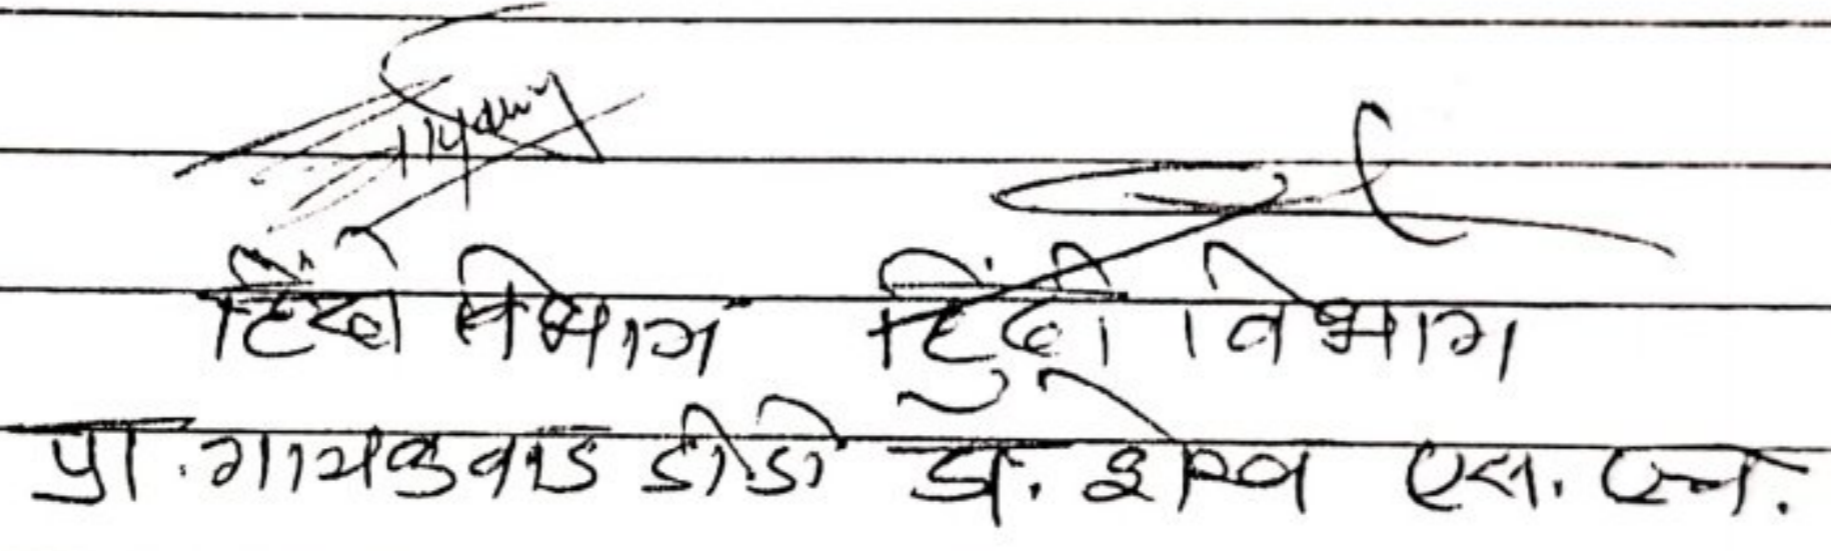 हिंदी विभाग हिंदी विभाग
प्रा. गायकवाड डी.डी. डॉ. शेख एस. एन.